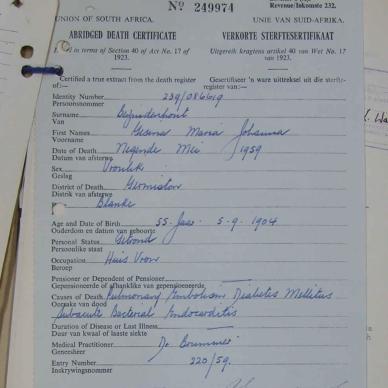 Nº 249974
Revenue/Inkomste 232.
UNION OF SOUTH AFRICA. UNIE VAN SUID-AFRIKA.
ABRIDGED DEATH CERTIFICATE VERKORTE STERFTESERTIFIKAAT
in terms of Section 40 of Act No. 17 of 1923. Uitgereik kragtens artikel 40 van Wet No. 17 van 1923.
Certified a true extract from the death register of:— Gesertifiseer 'n ware uittreksel uit die sterfteregister van:—
Identity Number 239/086619
Persoonsnommer
Surname
Van
First Names Gesina Maria Johanna
Voorname
Date of Death Negende Mei 1959
Datum van afsterwe
Sex Vroulik
Geslag
District of Death Germiston
Distrik van afsterwe
Blanke
Age and Date of Birth 55 Jaar 5-9-1904
Ouderdom en datum van geboorte
Personal Status Getroud
Persoonlike staat
Occupation Huis Vrou
Beroep
Pensioener or Dependent of Pensioener
Gepensioeneerde of afhanklike van gepensioeneerde
Causes of Death Pulmonary Embolism Diabetes Mellitus
Oorsake van dood Subacute Bacterial Endocarditis
Duration of Disease or Last Illness
Duur van kwaal of laaste siekte
Medical Practitioner Dr.
Geneesheer
Entry Number 220/59.
Inskrywingsnommer